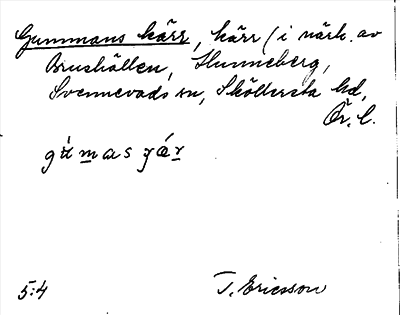 Gummans kärr, kärr (i närh. av
Brushällen, Hunneberg,
Svennevads sn, Sköllersta hd,
Ör. l.
5:4 T. Ericsson